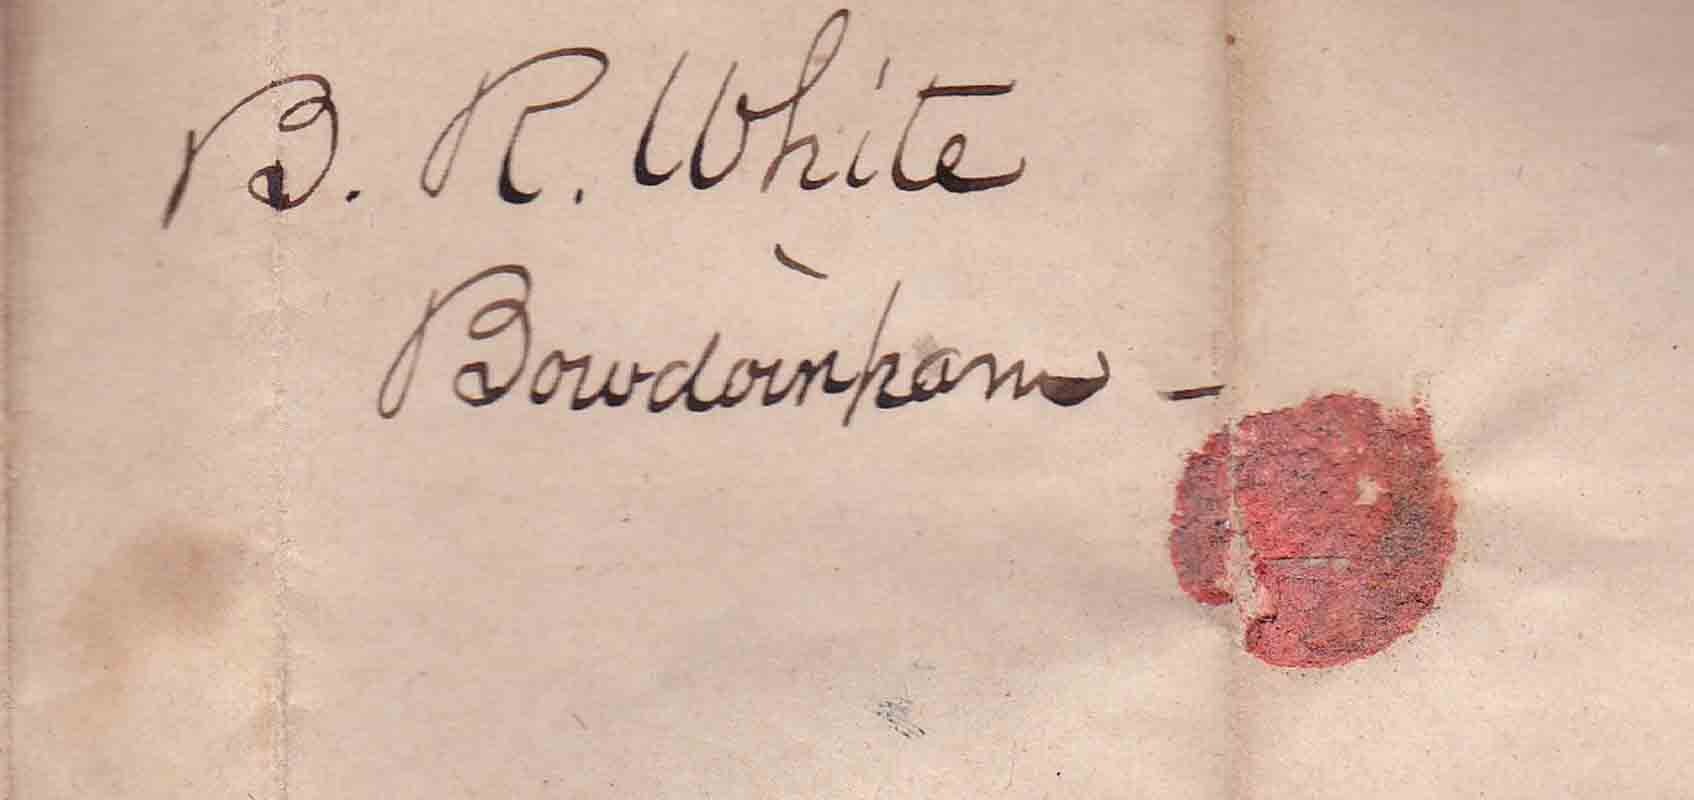 B. R. White
Bowdoinham -